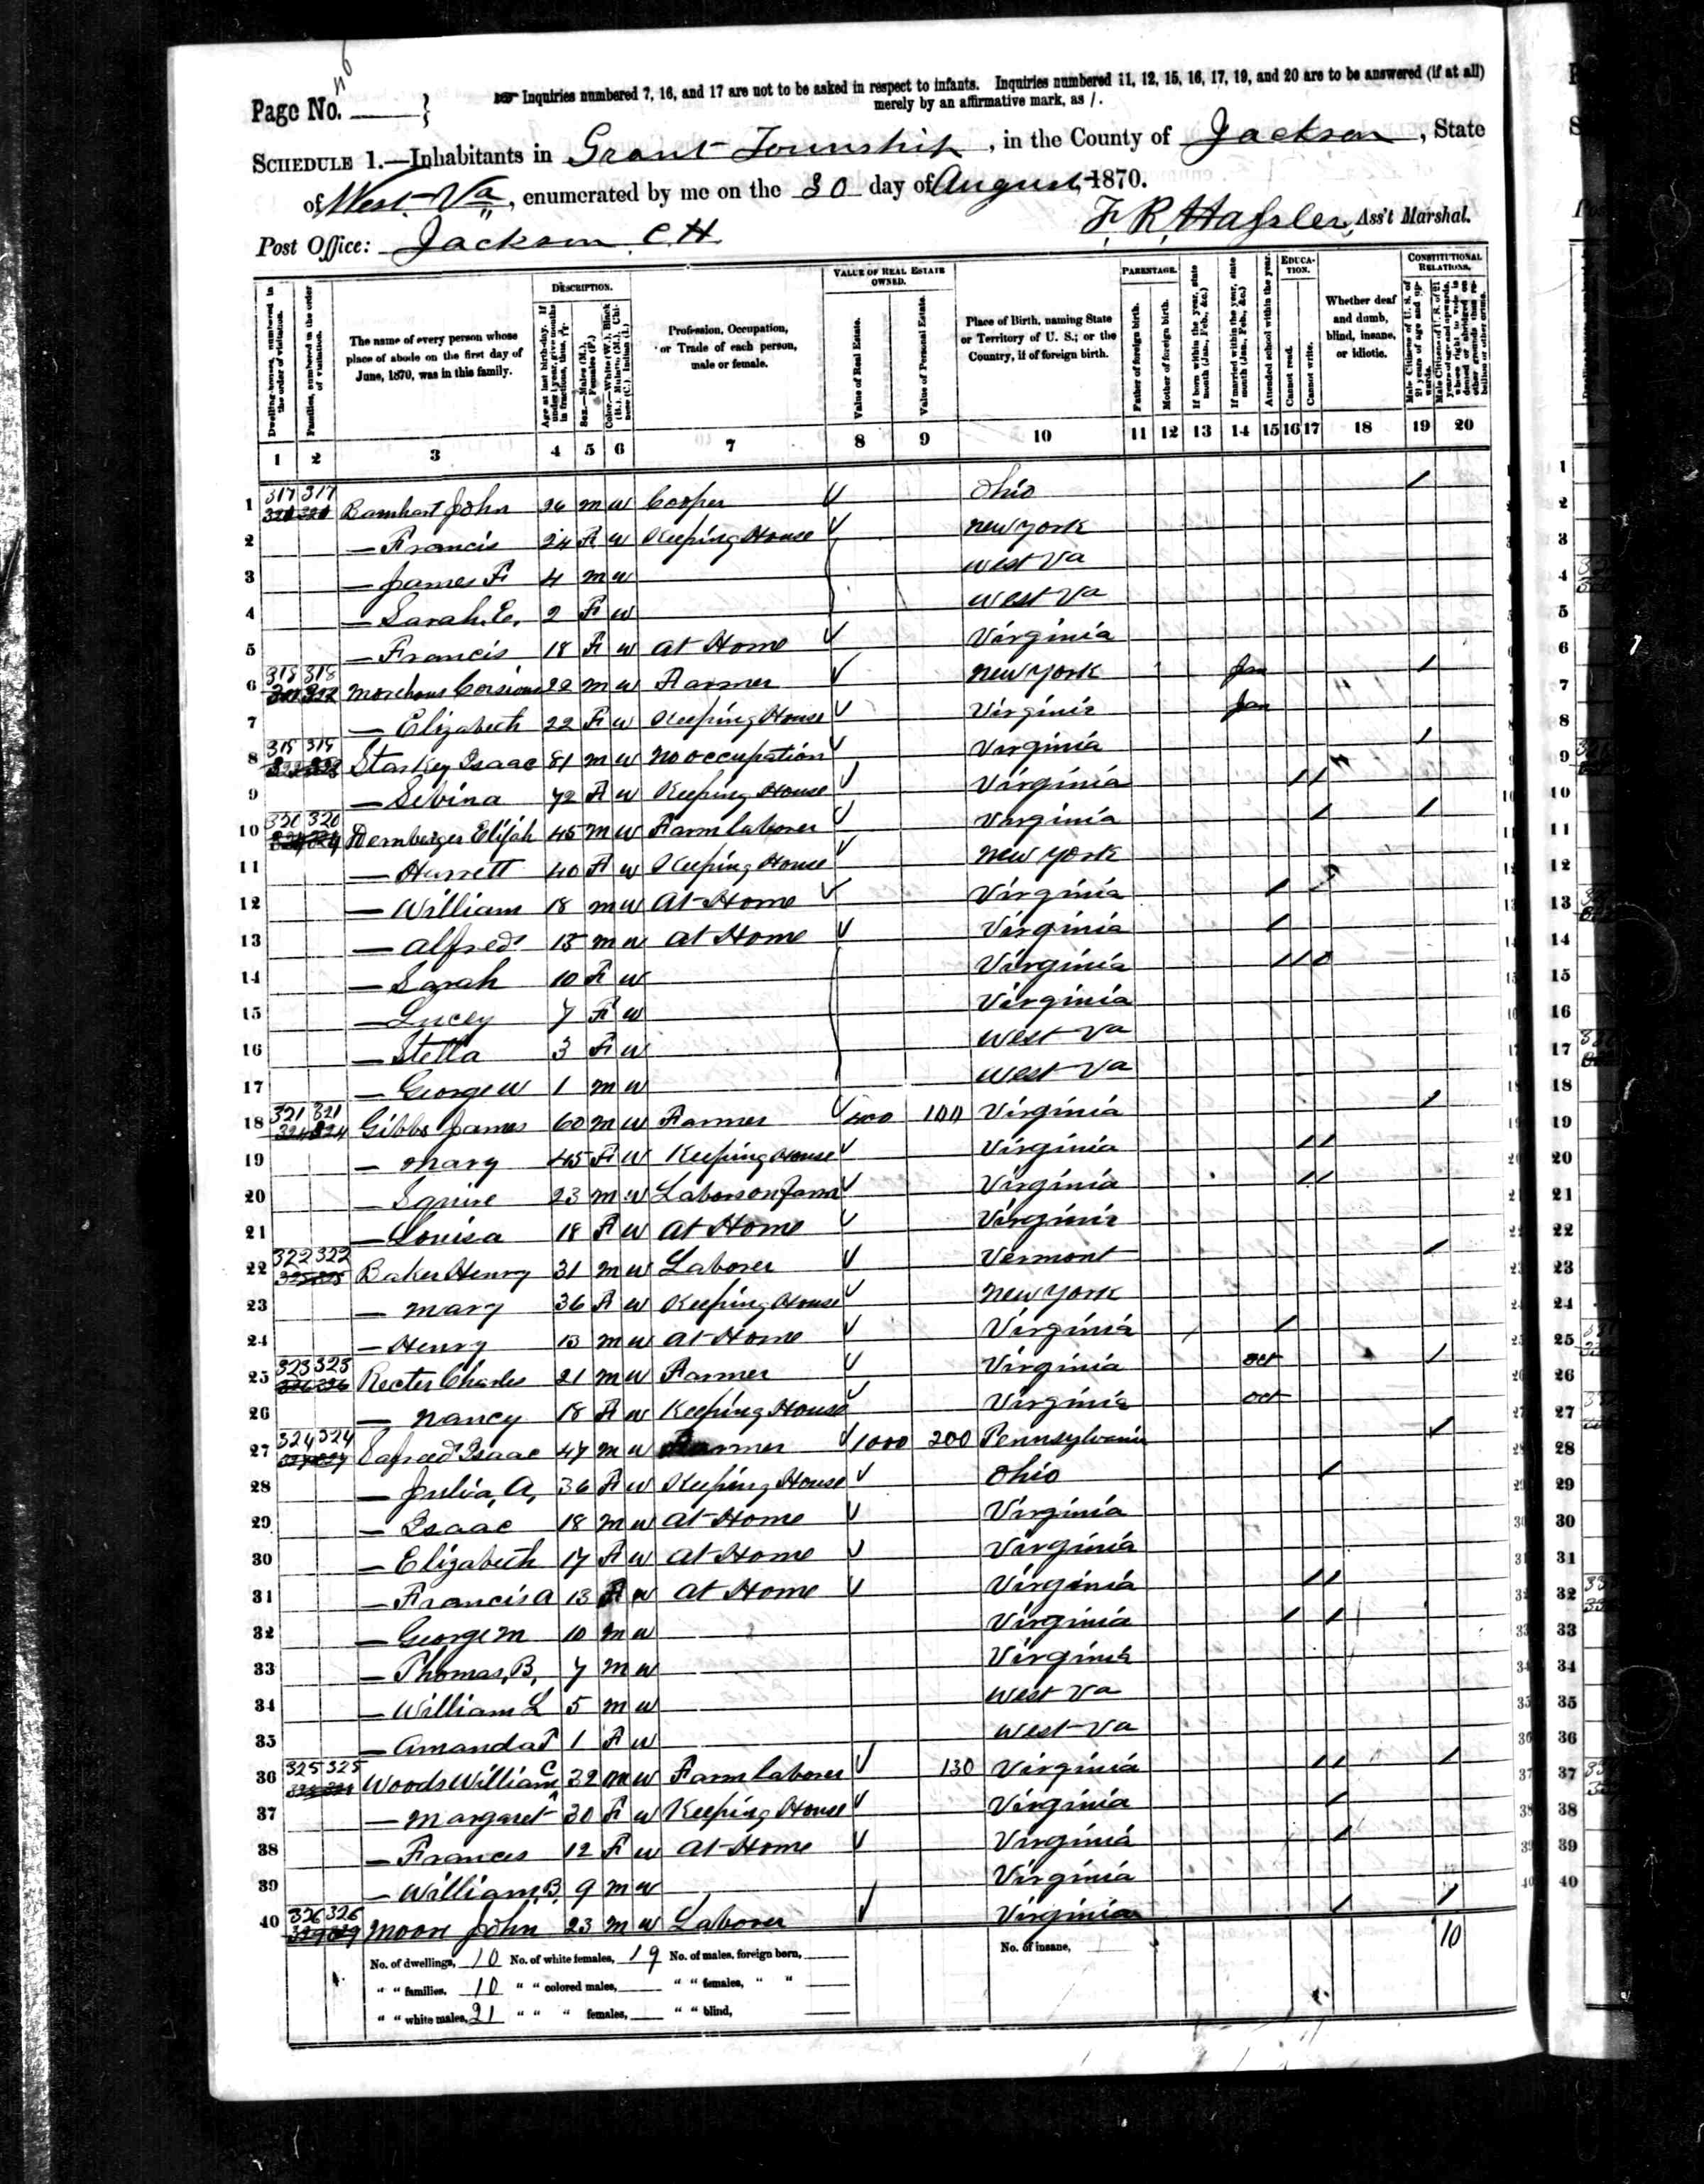 Page No. 46
Inquiries numbered 7, 16, and 17 are not to be asked in respect to infants. Inquiries numbered 11, 12, 15, 16, 17, 19, and 20 are to be answered (if at all)
merely by an affirmative mark, as /.
SCHEDULE 1.—Inhabitants in Grant Township, in the County of Jackson, State
of West Va, enumerated by me on the 30 day of August, 1870.
Post Office: Jackson C.H. F. R. Hassler, Ass't Marshal.
DESCRIPTION. VALUE OF REAL ESTATE OWNED. PARENTAGE. EDUCATION. CONSTITUTIONAL RELATIONS.
Dwelling-houses, numbered in the order of visitation.
Families, numbered in the order of visitation.
The name of every person whose place of abode on the first day of June, 1870, was in this family.
Age at last birth-day. If under 1 year, give months in fractions, thus,
Sex.—Males (M.), Females (F.)
Color.—White (W.), Black (B.), Mulatto (M.), Chinese (C.), Indian (I.)
Profession, Occupation, or Trade of each person, male or female.
Value of Real Estate.
Value of Personal Estate.
Place of Birth, naming State or Territory of U. S.; or the Country, if of foreign birth.
Father of foreign birth.
Mother of foreign birth.
If born within the year, state month (Jan., Feb., &c.)
If married within the year, state month (Jan., Feb., &c.)
Attended school within the year.
Cannot read.
Cannot write.
Whether deaf and dumb, blind, insane, or idiotic.
Male Citizens of U. S. of 21 years of age and upwards.
Male Citizens of U. S. of 21 years of age and upwards, whose right to vote is denied or abridged on other grounds than rebellion or other crime.
1 2 3 4 5 6 7 8 9 10 11 12 13 14 15 16 17 18 19 20
1 317 317 Barnhart John 26 m w Cooper Ohio /
2 — Francis 24 F w Keeping House New York
3 — James F 4 m w West Va
4 — Sarah E. 2 F w West Va
5 — Francis 18 F w at Home Virginia
6 318 318 22 m w Farmer New York Jan /
7 — Elizabeth 22 F w Keeping House Virginia Jan
8 319 319 Starkey Isaac 81 m w No occupation Virginia /
9 — Sebina 72 F w Keeping House Virginia / /
10 320 320 Dernberger Elijah 45 m w Farm laborer Virginia / /
11 — Harrett 40 F w Keeping House New York
12 — William 18 m w At Home Virginia /
13 — Alfred 15 m w at Home Virginia /
14 — Sarah 10 F w Virginia / / /
15 — Lucey 7 F w Virginia
16 — Stella 3 F w West Va
17 — George W 1 m w West Va
18 321 321 Gibbs James 60 m w Farmer 400 100 Virginia /
19 — Mary 45 F w Keeping House Virginia / /
20 — Squire 23 m w Labors on farm Virginia / /
21 — Louisa 18 F w at Home Virginia
22 322 322 Baker Henry 31 m w Laborer Vermont /
23 — Mary 36 F w Keeping House New York
24 — Henry 13 m w at Home Virginia /
25 323 323 Rector Charles 21 m w Farmer Virginia Oct /
26 — Nancy 18 F w Keeping House Virginia Oct
27 324 324 Isaac 47 m w Farmer 1000 200 Pennsylvania /
28 — Julia, A, 36 F w Keeping House Ohio /
29 — Isaac 18 m w at Home Virginia
30 — Elizabeth 17 F w at Home Virginia
31 — Francis A 13 F w at Home Virginia / /
32 — George M 10 m w Virginia / /
33 — Thomas, B, 7 m w Virginia
34 — William L 5 m w West Va
35 — Amanda 1 F w West Va
36 325 325 Woods William C 32 m w Farm laborer 130 Virginia / / /
37 — Margaret 30 F w Keeping House Virginia /
38 — Frances 12 F w at Home Virginia /
39 — William B. 9 m w Virginia
40 326 326 Moore John 23 m w Laborer Virginia / /
No. of dwellings, 10 No. of white females, 19 No. of males, foreign born, No. of insane, 10
" " families, 10 " " colored males, " " females, " "
" " white males, 21 " " " females, " " blind,